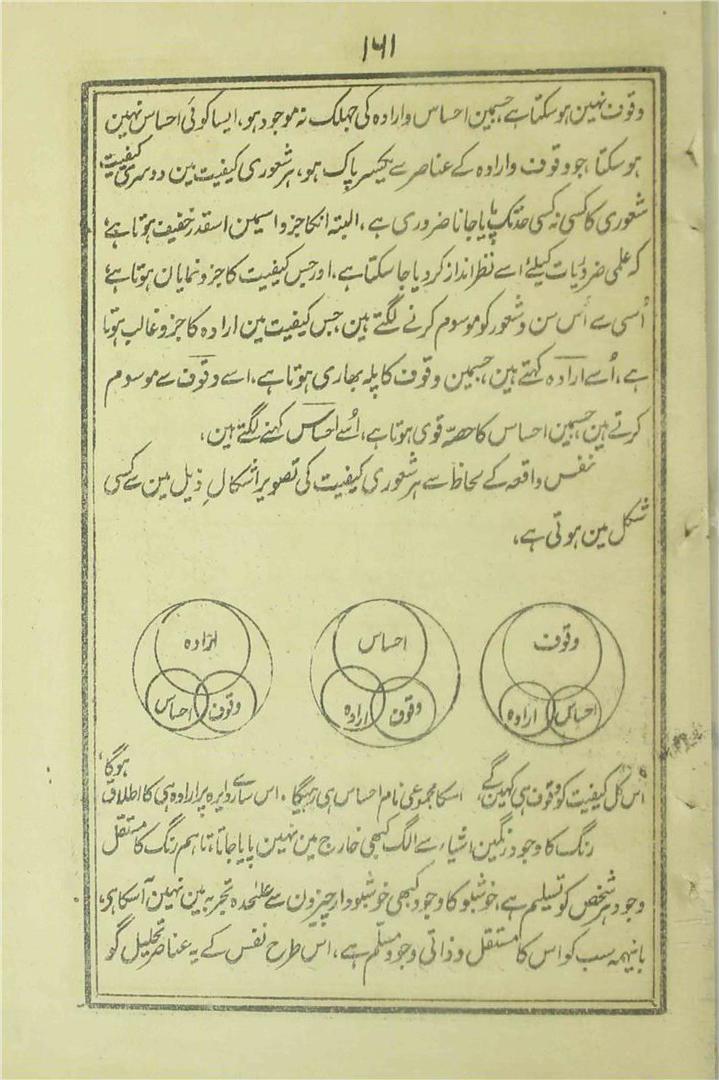 ۱۶۱
وقوف نہین ہوسکتا ہے جسمین احساس و ارادہ کی جھلک نہ موجود ہو، ایسا کوئی احساس نہین
ہوسکتا جو وقوف و ارادہ کے عناصر سے یکسر پاک ہو، ہر شعوری کیفیت مین دوسری کیفیت
شعوری کا کسی نہ کسی حد تک پایا جانا ضروری ہے، البتہ انکا جزو اسمین اسقدر خفیف ہوتا ہے
کہ علمی ضروریات کیلئے اسے نظر انداز کر دیا جا سکتا ہے، اور جس کیفیت کا جزو نمایان ہوتا ہے
اُسی سے اُس سن و شعور کو موسوم کرنے لگتے ہین جس کیفیت مین ارادہ کا جزو غالب ہوتا
ہے، اُسے ارادہ کہتے ہین، جسمین وقوف کا پلہ بھاری ہوتا ہے، اسے وقوف سے موسوم
کرتے ہین جسمین احساس کا حصّہ قوی ہوتا ہے، اُسے احساس کہنے لگتے ہین،
نفس واقعہ کے لحاظ سے ہر شعوری کیفیت کی تصویر اشکالِ ذیل مین سے کسی
شکل مین ہوتی ہے،
وقوف احساس ارادہ
احساس ارادہ وقوف ارادہ وقوف احساس
اُس کُل کیفیت کو وقوف ہی کہین گے، اسکا مجموعی نام احساس ہی رہیگا، اس سارے دایرہ پر ارادہ ہی کا اطلاق ہوگا،
رنگ کا وجود رنگین اشیاء سے الگ کبھی خارج مین نہین پایا جاتا، تاہم رنگ کا مستقل
وجود ہر شخص کو تسلیم ہے، خوشبو کا وجود کبھی خوشبودار چیزون سے علٰحدہ تجربہ مین نہین آسکا ہی،
باینہمہ سب کو اس کا مستقل و ذاتی وجود مسلّم ہے، اس طرح نفس کے یہ عناصر تحلیل گو